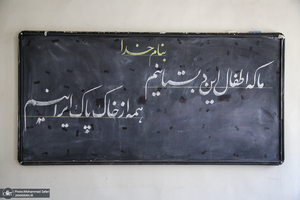 بنام خدا
ما که اطفال این دبستانیم
همه از خاک پاک ایرانیم